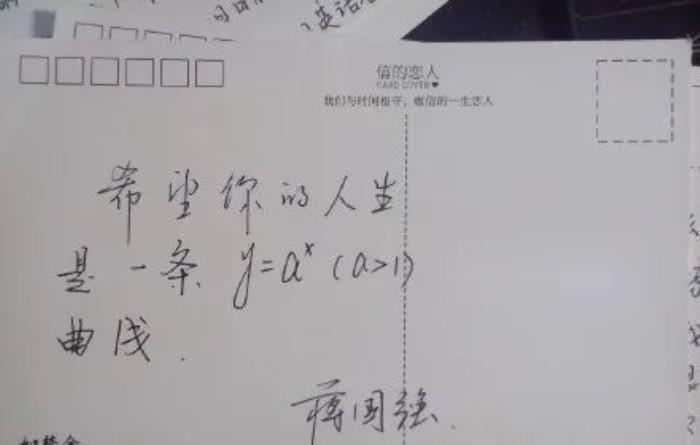 信的恋人
CARD LOVER♥
我们与时间相守，做信的一生恋人
希望你的人生
是一条 y=aˣ (a>1)
曲线.
蒋国强.